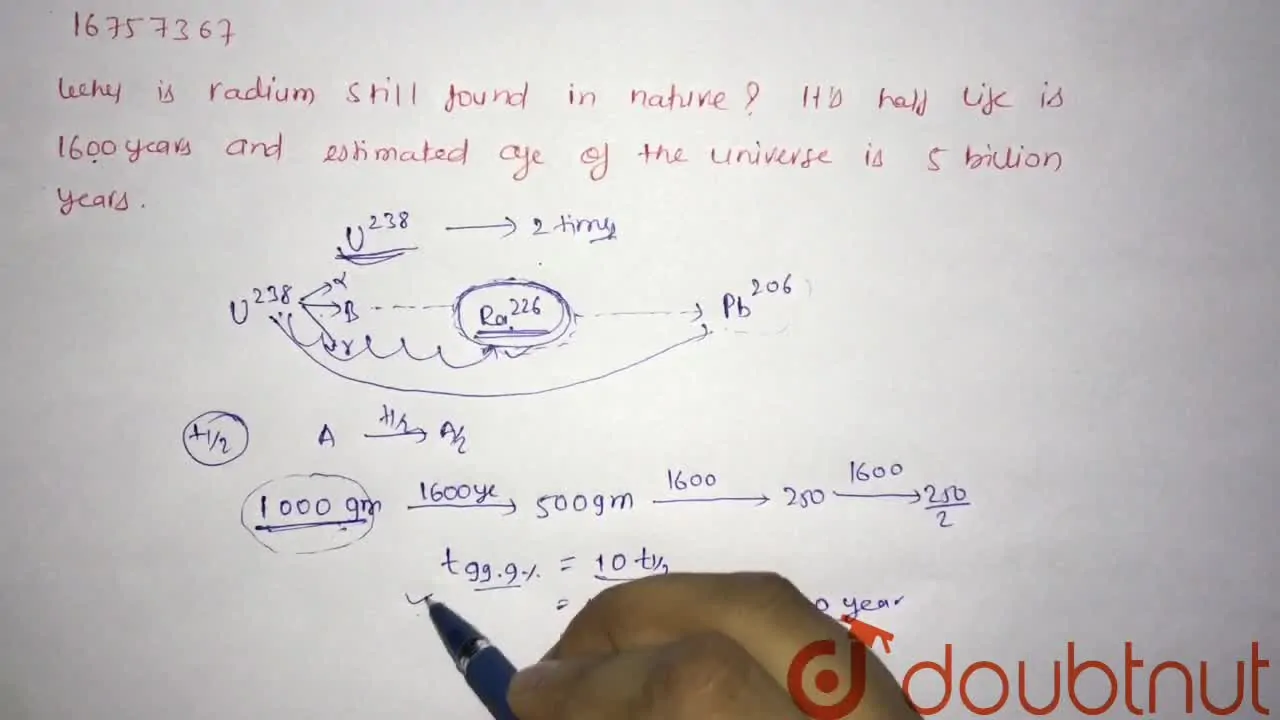 16757367
Why is radium still found in nature? It's half life is
1600 years and estimated age of the universe is 5 billion
years.
U²³⁸ → 2 times
U²³⁸ α
β Ra²²⁶ → Pb²⁰⁶
γ
t1/2 A t1/2 → A/2
1000 gm 1600 ye → 500 gm 1600 → 250 1600 → 250/2
t 99.9% = 10 t½
= 0 year
doubtnut